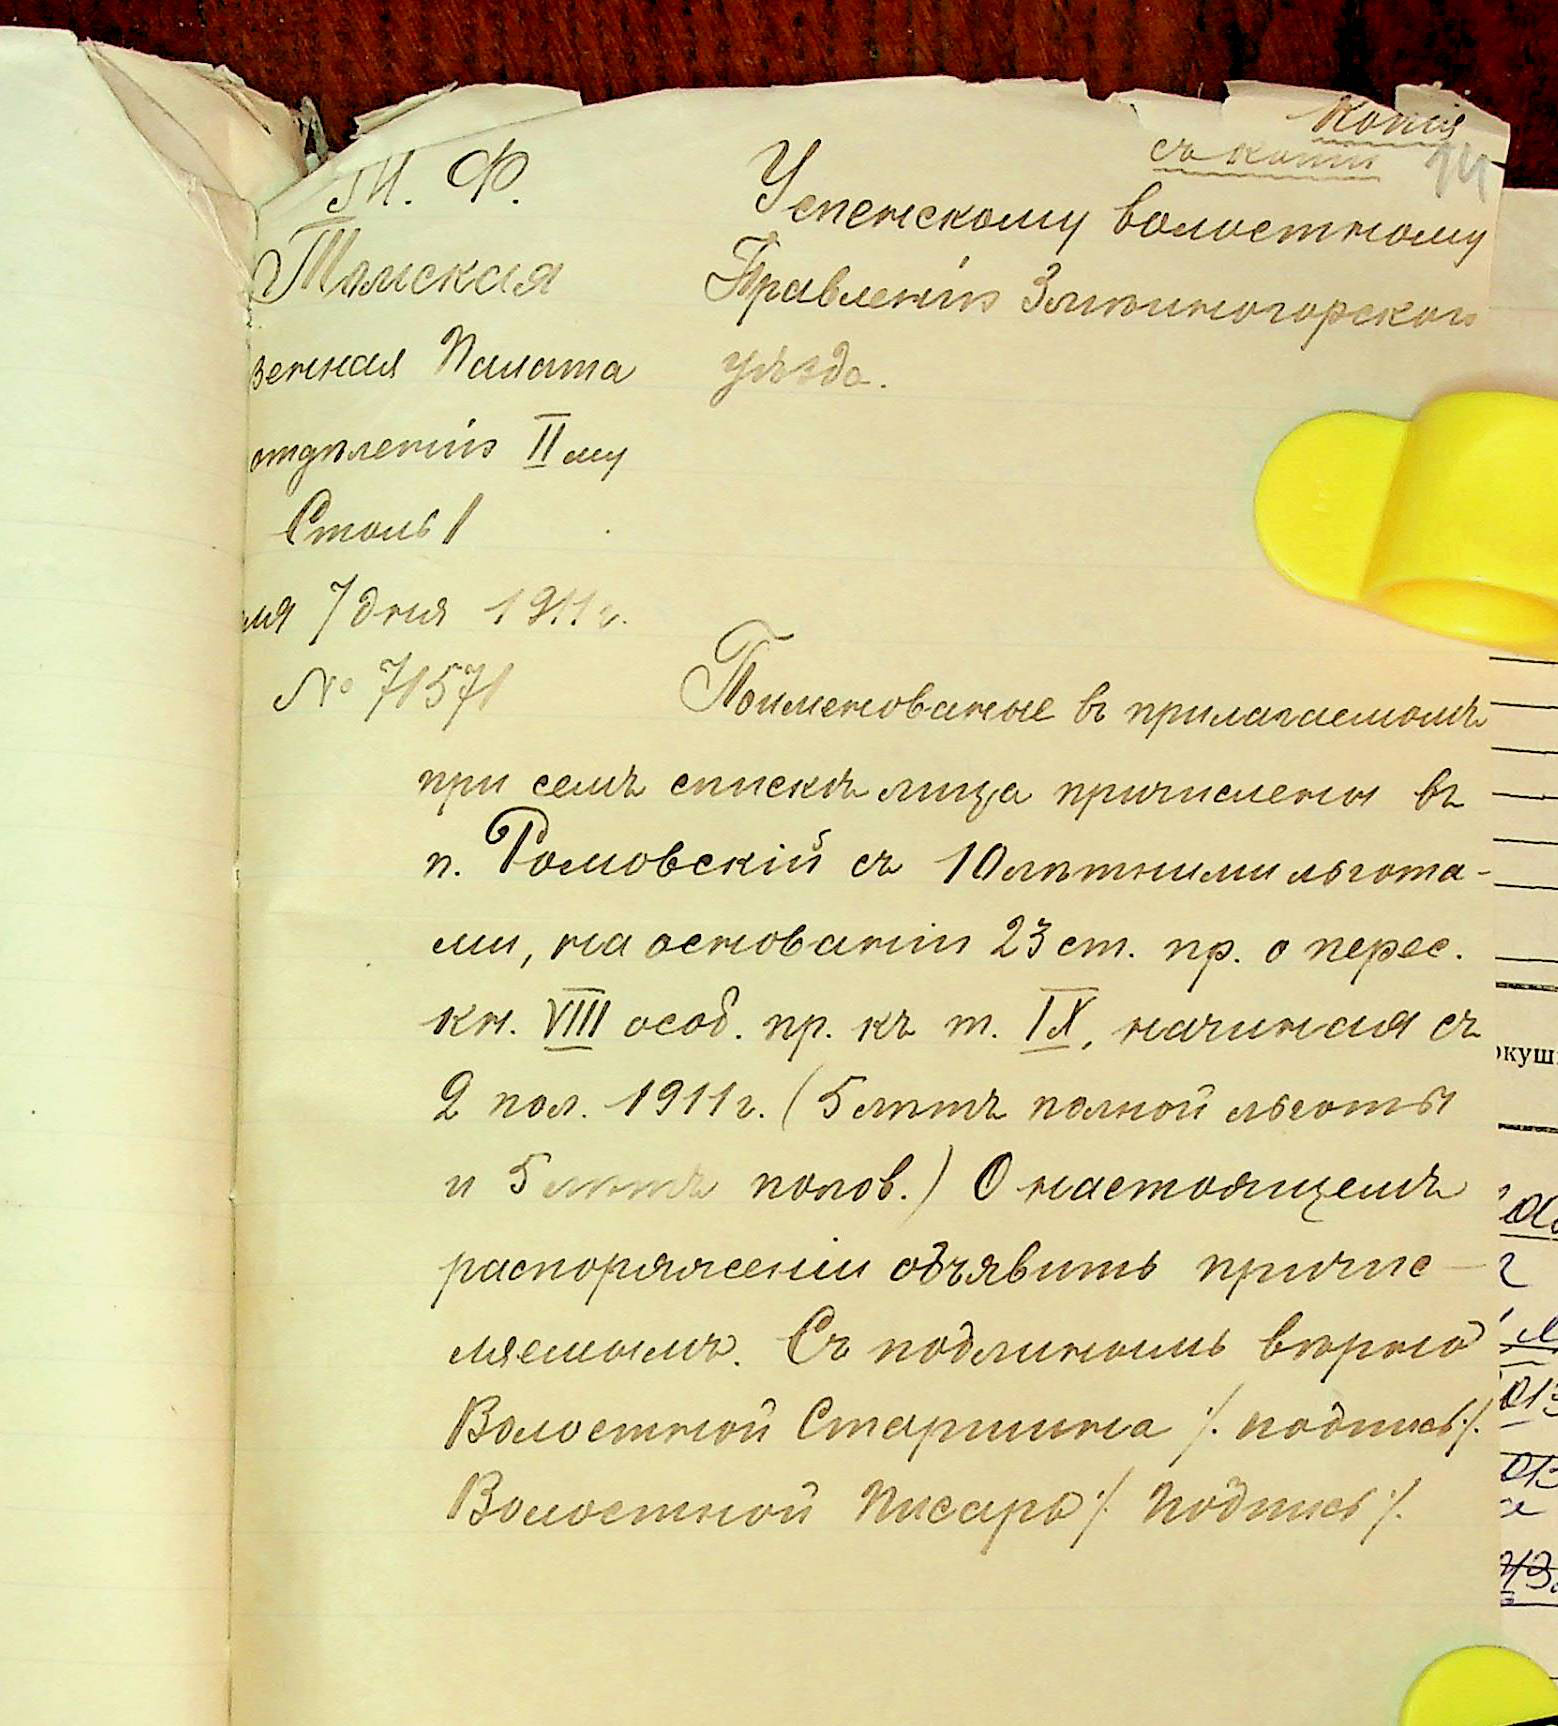 Копія
съ копіи
14
М. Ф.
Томская
зенная Палата
отдѣленію II му
Столъ 1
ля 7 дня 1911 г.
№ 71571
Успенскому волостному
Правленію Змѣиногорскаго
уѣзда.
Поименованные въ прилагаемомъ
при семъ спискѣ лица причислены въ
п. Ромовскій съ 10 лѣтними льгота-
ми, на основаніи 23 ст. пр. о перес.
кн. VIII особ. пр. къ т. IX, начиная съ
2 пол. 1911 г. (5 лѣтъ полной льготы
и 5 лѣтъ полов.) О настоящемъ
распоряженіи объявить причис-
ляемымъ. Съ подлиннымъ вѣрно
Волостной Старшина /. подпись /.
Волостной Писарь /. Подпись /.
окуш